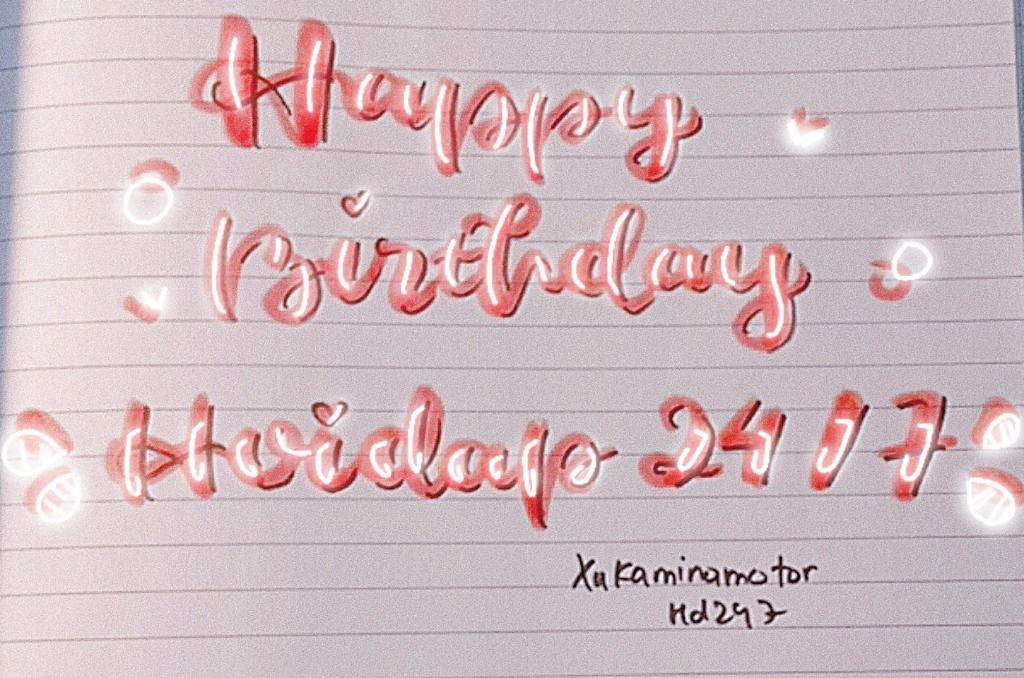 Happy
Birthday
Hvidap 24/7
Xukaminamotor
Hd247